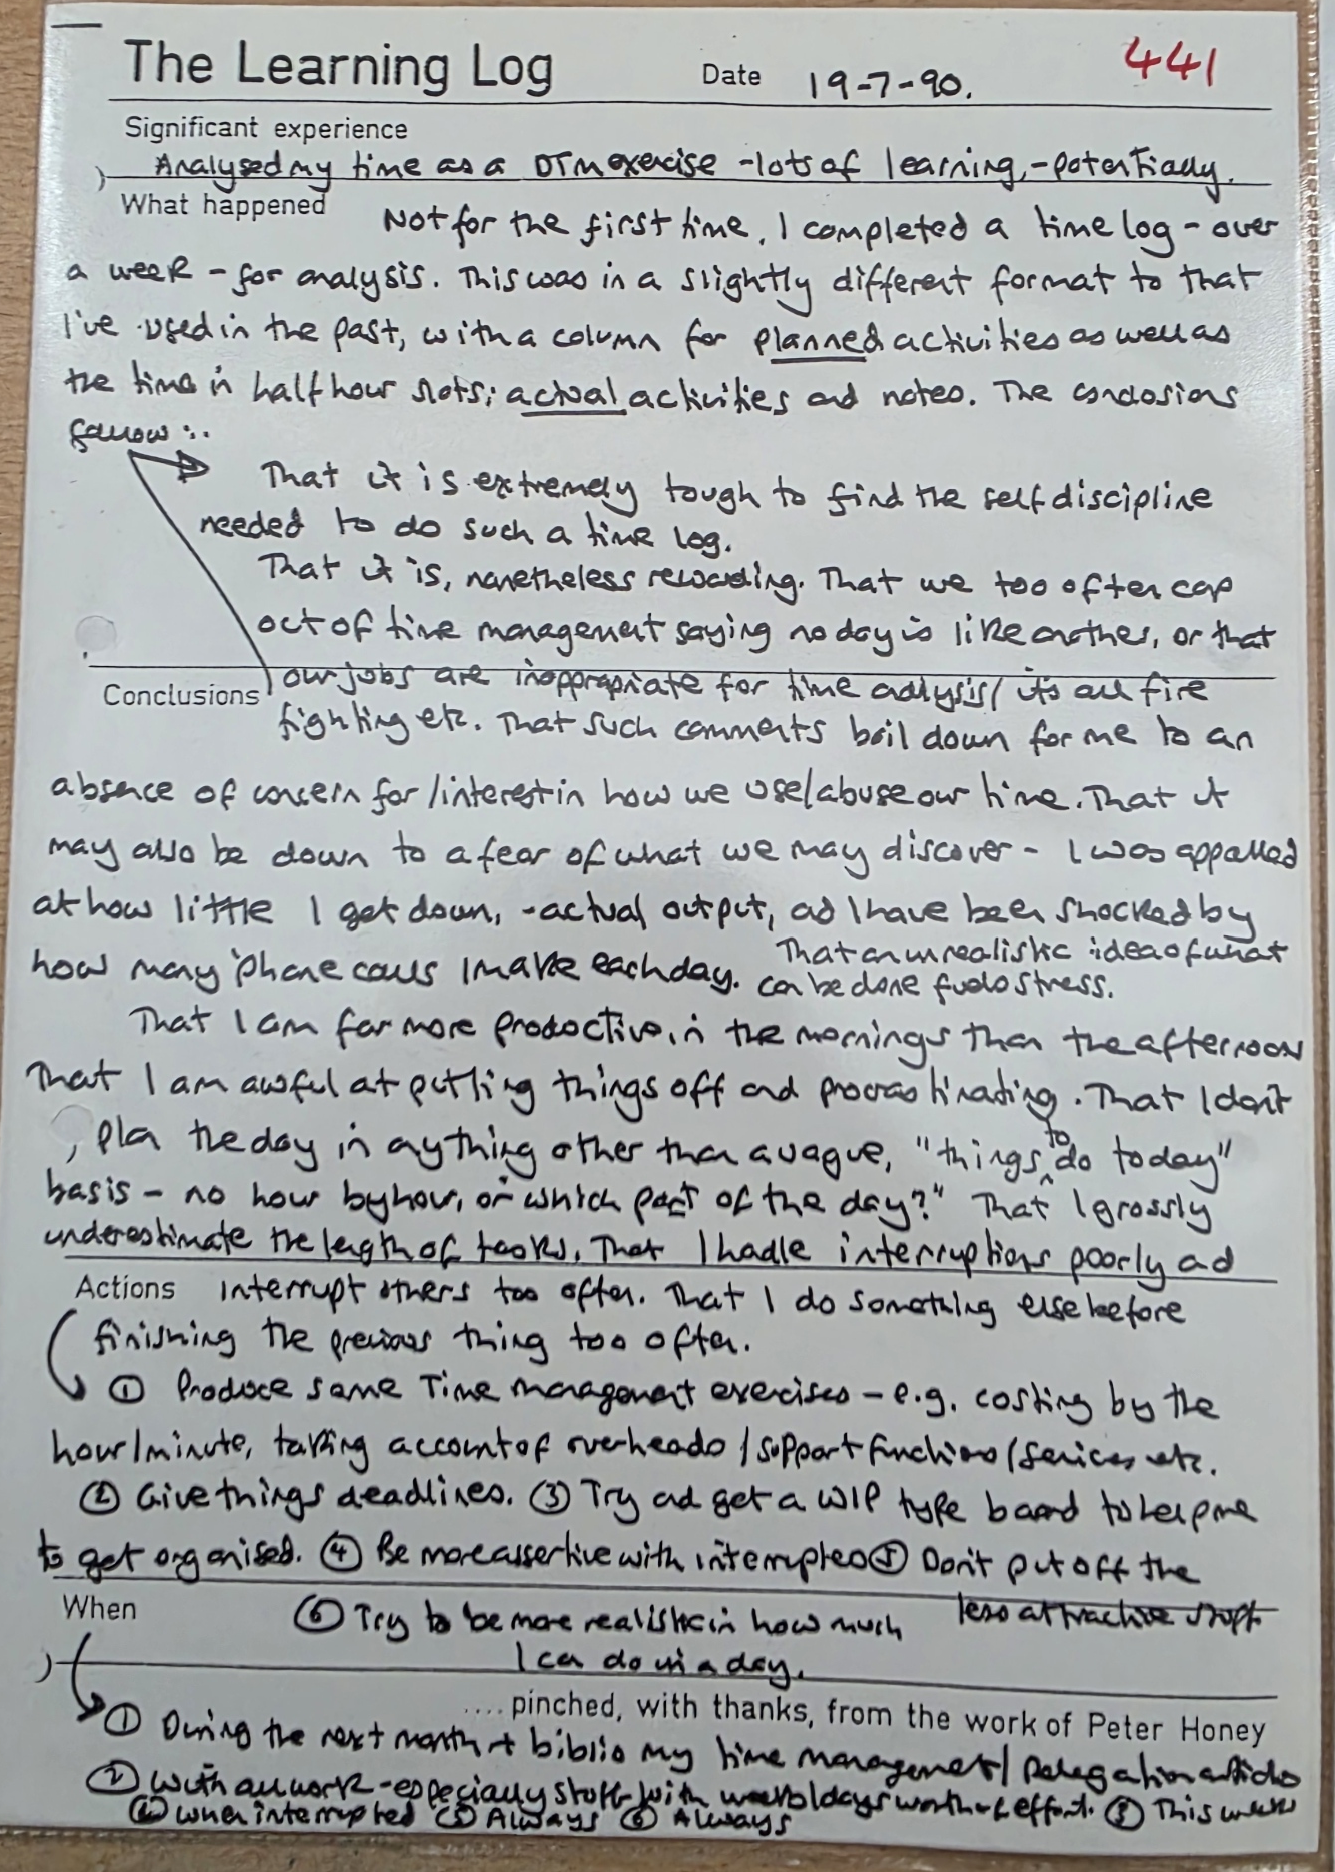 The Learning Log Date 19-7-90. 441
Significant experience
Analysed my time as a DTM exercise - lots of learning, - potentially.
What happened Not for the first time, I completed a time log - over
a week - for analysis. This was in a slightly different format to that
I've used in the past, with a column for planned activities as well as
the time in half hour slots; actual activities and notes. The conclusions
follow :..
That it is extremely tough to find the self discipline
needed to do such a time log.
That it is, nonetheless rewarding. That we too often cop
out of time management saying no day is like another, or that
our jobs are inappropriate for time analysis / its all fire
Conclusions
fighting etc. That such comments boil down for me to an
absence of concern for / interest in how we use/abuse our time. That it
may also be down to a fear of what we may discover - I was appalled
at how little I get down, - actual output, ad I have been shocked by
how many 'phone calls I make each day. That an unrealistic idea of what
can be done fuels stress.
That I am far more productive in the mornings than the afternoon
That I am awful at putting things off and procrastinating. That I don't
plan the day in anything other than a vague, "things to do today"
basis - no hour by hour, or "which part of the day?" That I grossly
underestimate the length of tasks. That I hadle interruptions poorly ad
Actions interrupt others too often. That I do something else before
finishing the previous thing too often.
① Produce some Time management exercises - e.g. costing by the
hour/minute, taking account of overheads / support functions / services etc.
② Give things deadlines. ③ Try ad get a WIP type board to help me
to get organised. ④ Be more assertive with interruptions ⑤ Don't put off the
less attractive stuff.
When ⑥ Try to be more realistic in how much
I can do in a day.
.... pinched, with thanks, from the work of Peter Honey
① During the next month + biblio my time management / Delegation articles
② With all work - especially stuff with weeks/days worth of effort. ③ This week
④ when interrupted ⑤ Always ⑥ Always